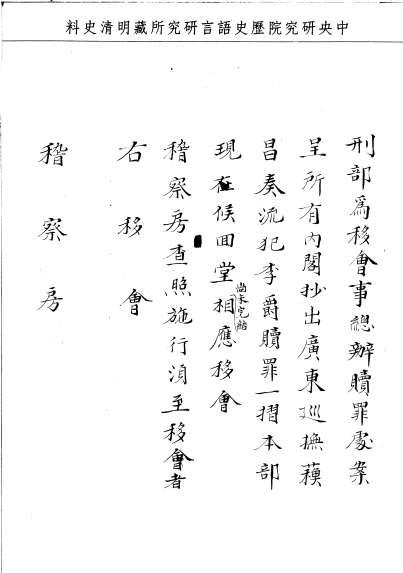 中央研究院歷史語言研究所藏明清史料
刑部為移會事總辦贖罪處案
呈所有內閣抄出廣東巡撫蘓
昌奏流犯李爵贖罪一摺本部
現在候回堂尚未完結相應移會
稽察房查照施行湏至移會者
右移會
稽察房